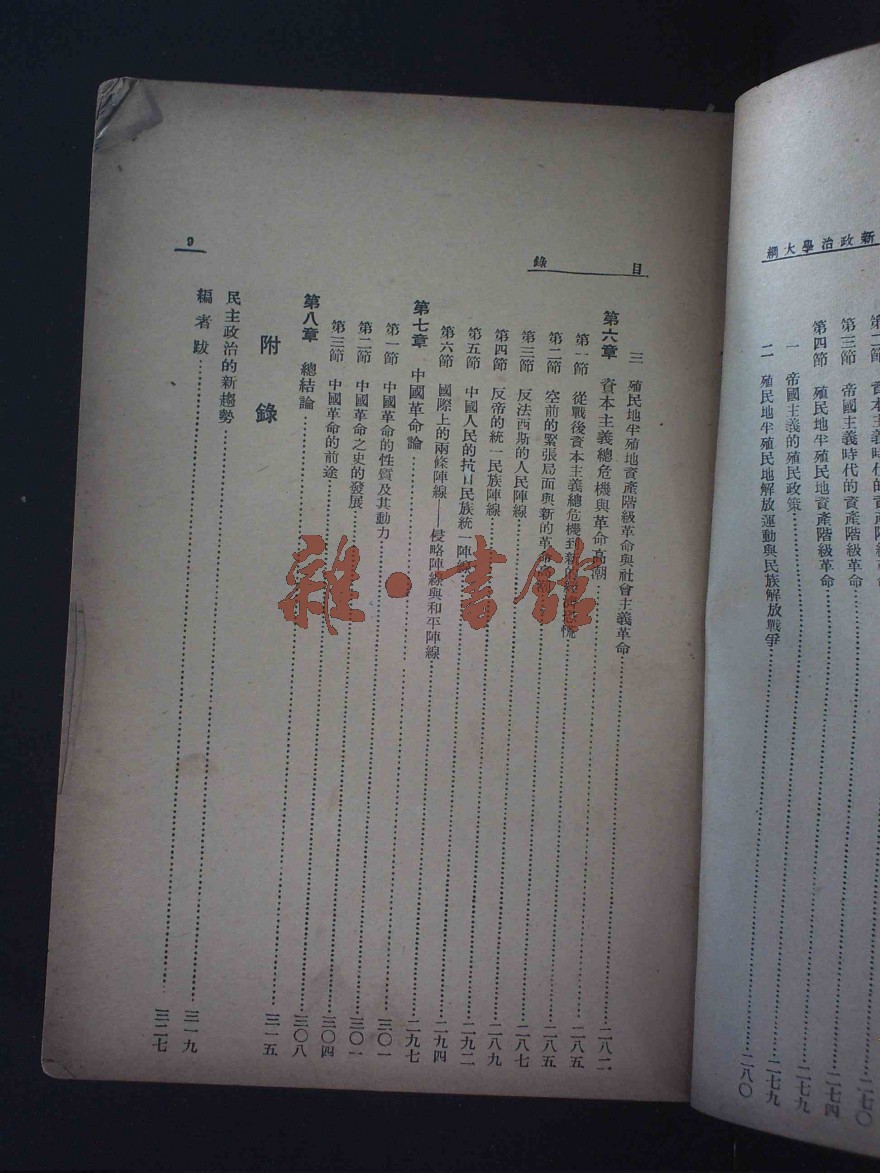 新政治學大綱
第二節
第三節 帝國主義時代的資產階級革命……二七四
第四節 殖民地半殖民地資產階級革命……二七九
一 帝國主義的殖民政策……二七九
二 殖民地半殖民地解放運動與民族解放戰爭……二八〇
二七〇
目錄
三 殖民地半殖地資產階級革命與社會主義革命……二八二
第六章 資本主義總危機與革命高潮……二八五
第一節 從戰後資本主義總危機到新的 慌……二八五
第二節 空前的緊張局面與新的革命……二八七
第三節 反法西斯的人民陣線……二八九
第四節 反帝的統一民族陣線……二九二
第五節 中國人民的抗日民族統一陣線……二九四
第六節 國際上的兩條陣線——侵略陣線與和平陣線……二九七
第七章 中國革命論……三〇一
第一節 中國革命的性質及其動力……三〇一
第二節 中國革命之史的發展……三〇四
第三節 中國革命的前途……三〇八
第八章 總結論……三一五
附錄
民主政治的新趨勢……三一九
編者跋……三二七
9
雜·書館